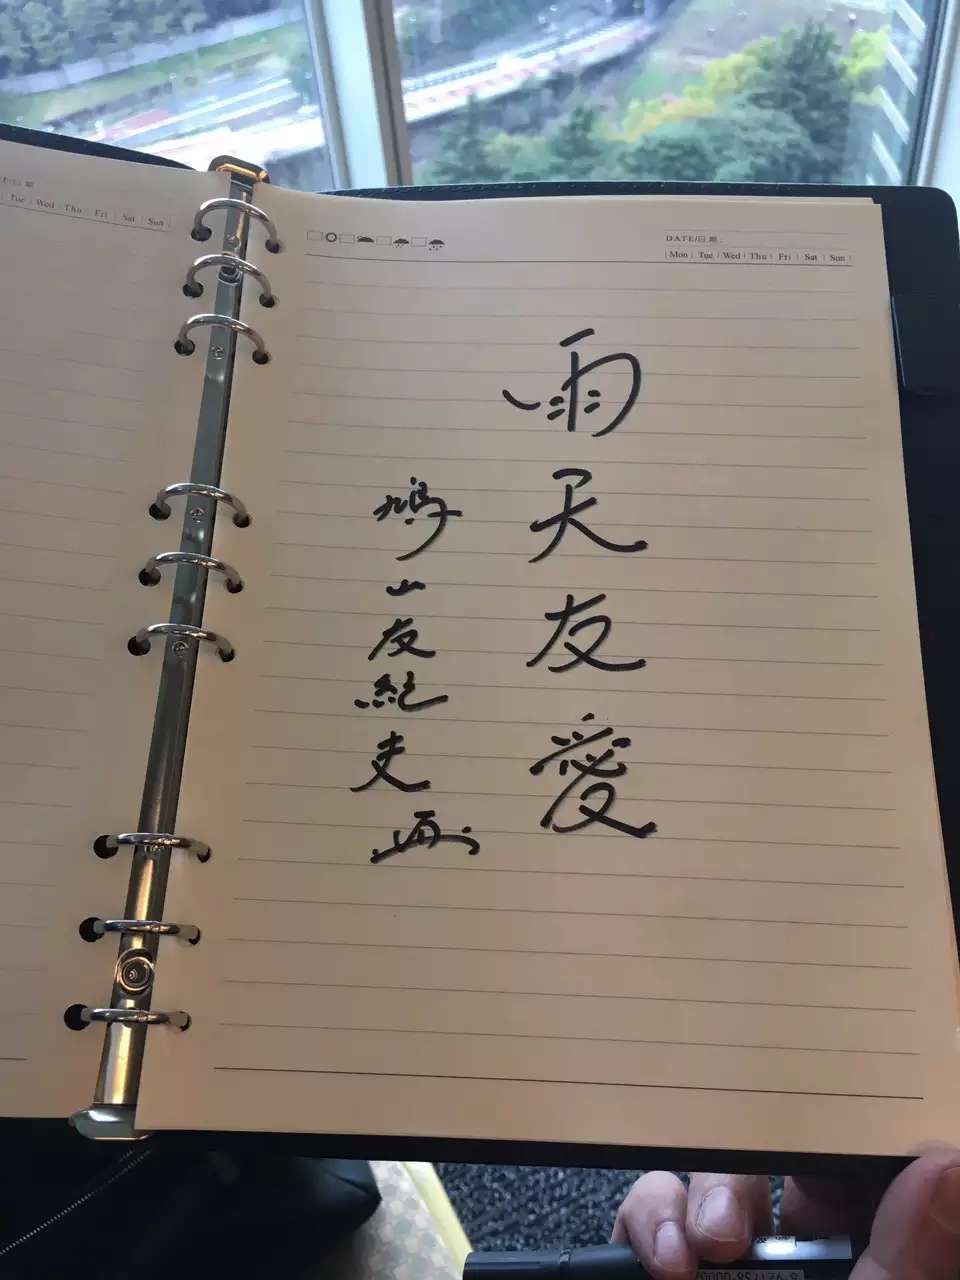 日期
Tue Wed Thu Fri Sat Sun
DATE/日期:
Mon | Tue | Wed | Thu | Fri | Sat | Sun
雨天友愛
鳩山友紀夫